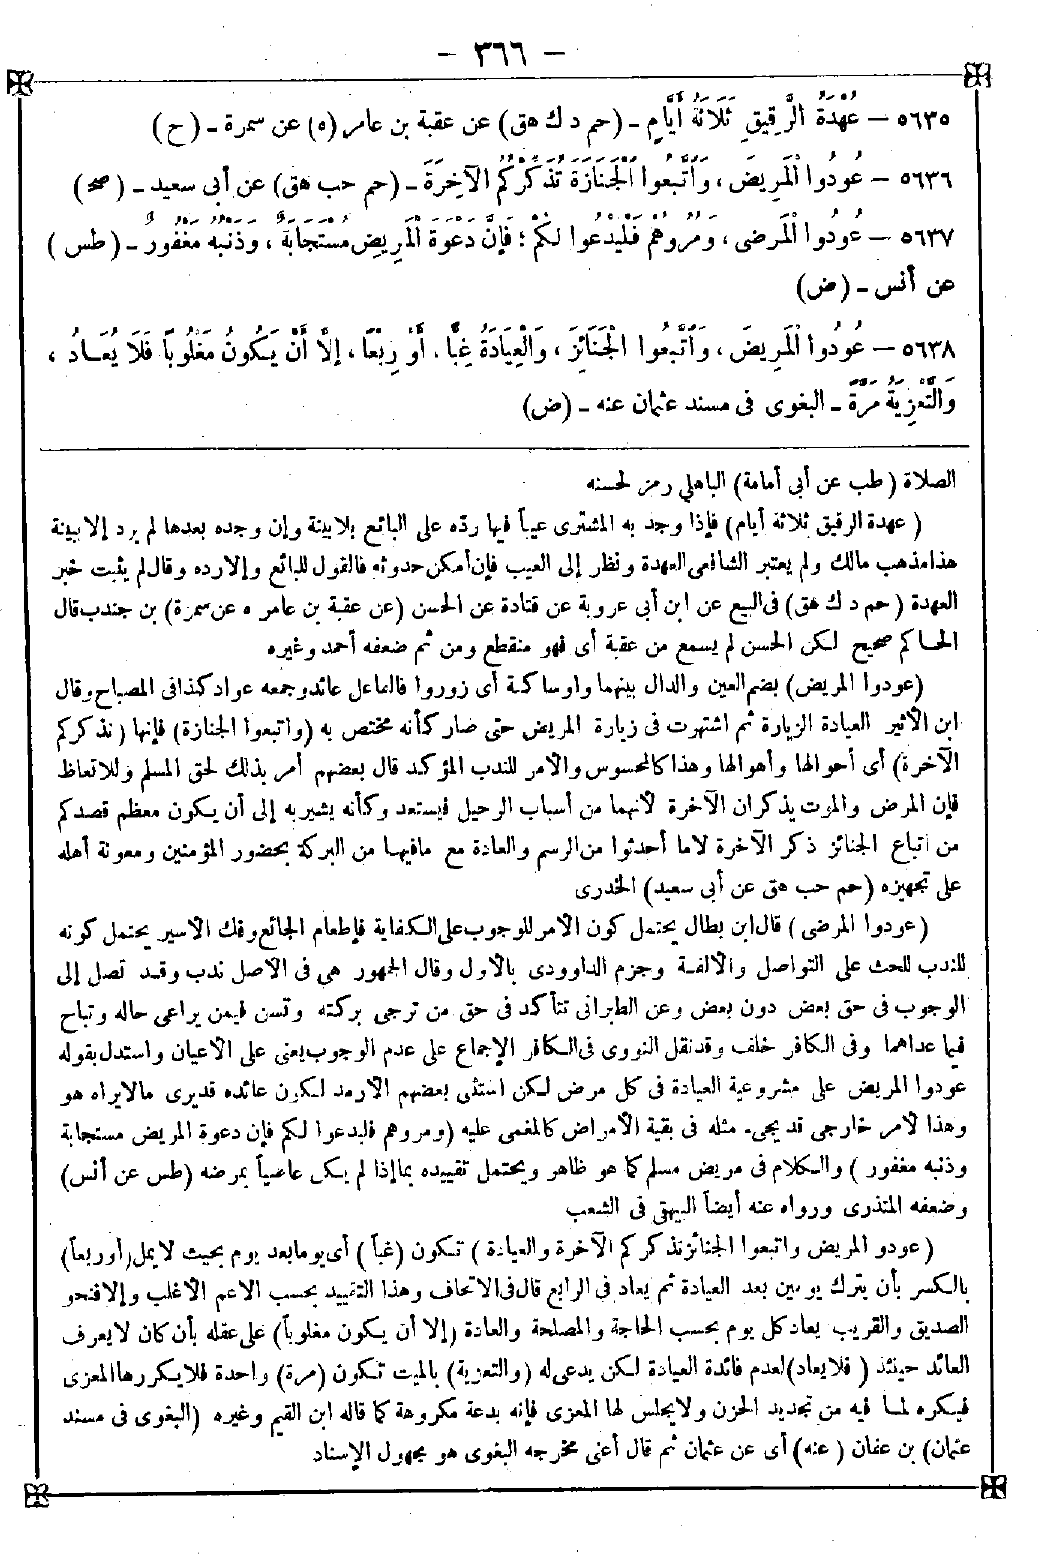 — ٣٦٦ —
٥٦٣٥ — عُهْدَةُ الرَّقِيقِ ثَلَاثَةُ أَيَّامٍ - (حم د ك هق) عن عقبة بن عامر (ه) عن سمرة - (ح)
٥٦٣٦ — عُودُوا الْمَرِيضَ ، وَاتَّبِعُوا الْجَنَازَةَ تُذَكِّرْكُمُ الْآخِرَةَ - (حم حب هق) عن أبى سعيد - (صح)
٥٦٣٧ — عُودُوا الْمَرْضَى ، وَمُرُوهُمْ فَلْيَدْعُوا لَكُمْ ؛ فَإِنَّ دَعْوَةَ الْمَرِيضِ مُسْتَجَابَةٌ ، وَذَنْبُهُ مَغْفُورٌ - (طس)
عن أنس - (ض)
٥٦٣٨ — عُودُوا الْمَرِيضَ ، وَاتَّبِعُوا الْجَنَائِزَ ، وَالْعِيَادَةُ غِبًّا ، أَوْ رِبْعًا ، إِلَّا أَنْ يَكُونَ مَغْلُوبًا فَلَا يُعَـادُ ،
وَالتَّعْزِيَةُ مَرَّةً - البغوى فى مسند عثمان عنه - (ض)
الصلاة ( طب عن أبى أمامة) الباهلي رمز لحسنه
( عهدة الرقيق ثلاثة أيام) فإذا وجد به المشترى عيباً فيها ردّه على البائع بلا بينة وإن وجده بعدها لم يرد إلا ببينة
هذا مذهب مالك ولم يعتبر الشافعى العهدة ونظر إلى العيب فإن أمكن حدوثه فالقول للبائع وإلا رده وقال لم يثبت خبر
العهدة ( حم د ك هق) فى البيع عن ابن أبى عروبة عن قتادة عن الحسن (عن عقبة بن عامر ه عن سمرة) بن جندب قال
الحـاكم صحيح لكن الحسن لم يسمع من عقبة أى فهو منقطع ومن ثم ضعفه أحمد وغيره
(عودوا المريض) بضم العين والدال بينهما واو ساكنة أى زوروا فالفاعل عائد وجمعه عواد كذا فى المصباح وقال
ابن الأثير العيادة الزيارة ثم اشتهرت فى زيارة المريض حتى صار كأنه مختص به (واتبعوا الجنازة) فإنها (تذكركم
الآخرة) أى أحوالها وأهوالها وهذا كالمحسوس والأمر للندب المؤكد قال بعضهم أمر بذلك لحق المسلم وللاتعاظ
فإن المرض والموت يذكران الآخرة لأنهما من أسباب الرحيل فيستعد وكأنه يشير به إلى أن يكون معظم قصدكم
من اتباع الجنائز ذكر الآخرة لا ما أحدثوا من الرسم والعادة مع ما فيهـا من البركة بحضور المؤمنين ومعونة أهله
على تجهيزه (حم حب هق عن أبى سعيد) الخدرى
(عودوا المرضى) قال ابن بطال يحتمل كون الأمر للوجوب على الكفاية فإطعام الجائع وفك الأسير يحتمل كونه
للندب للحث على التواصل والألفـة وجزم الداوودى بالأول وقال الجمهور هى فى الأصل ندب وقـد تصل إلى
الوجوب فى حق بعض دون بعض وعن الطبرانى تتأكد فى حق من ترجى بركته وتسن فيمن يراعى حاله وتباح
فيما عداهما وفى الكافر خلف وقد نقل النووى فى الكافر الإجماع على عدم الوجوب يعنى على الأعيان واستدل بقوله
عودوا المريض على مشروعية العيادة فى كل مرض لكن استثنى بعضهم الأرمد لكون عائده قد يرى ما لا يراه هو
وهذا لأمر خارجى قد يجىء مثله فى بقية الأمراض كالمغمى عليه (ومروهم فليدعوا لكم فإن دعوة المريض مستجابة
وذنبه مغفور ) والكلام فى مريض مسلم كما هو ظاهر ويحتمل تقييده بما إذا لم يكن عاصياً بمرضه (طس عن أنس)
وضعفه المنذرى ورواه عنه أيضاً البيهقى فى الشعب
(عودو المريض واتبعوا الجنائز تذكركم الآخرة والعيادة ) تكون (غباً ) أى يوما بعد يوم بحيث لا يمل (أو ربعاً)
بالكسر بأن يترك يومين بعد العيادة ثم يعاد فى الرابع قال فى الاتحاف وهذا التقييد بحسب الأعم الأغلب وإلا فنحو
الصديق والقريب يعاد كل يوم بحسب الحاجة والمصلحة والعادة (إلا أن يكون مغلوباً) على عقله بأن كان لا يعرف
العائد حينئذ ( فلا يعاد) لعدم فائدة العيادة لكن يدعى له (والتعزية) بالميت تكون (مرة) واحدة فلا يكررها المعزى
فيكره لمـا فيه من تجديد الحزن ولا يجلس لها المعزى فإنه بدعة مكروهة كما قاله ابن القيم وغيره (البغوى فى مسند
عثمان) بن عفان ( عنه) أى عن عثمان ثم قال أعنى مخرجه البغوى هو مجهول الإسناد